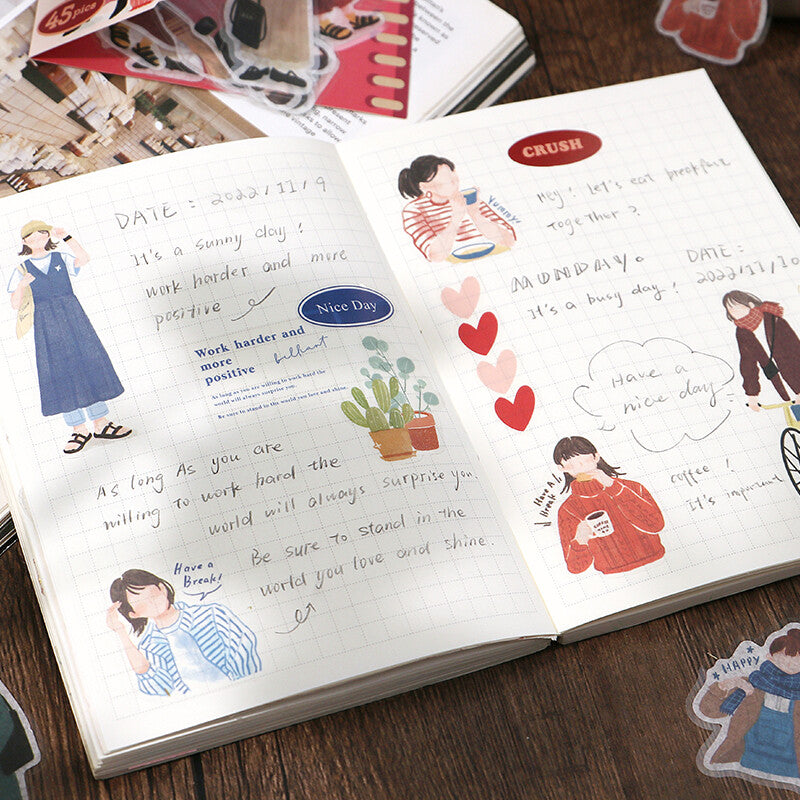 45pics
DATE : 2022/11/9
It's a sunny day!
work harder and more
positive
Nice Day
Work harder and
more
positive
As long as you are willing to work hard the
world will always surprise you.
Be sure to stand to the world you love and shine.
As long As you are
willing to work hard the
world will always surprise you
Be sure to stand in the
world you love and shine.
Have a
Break!
CRUSH
Yummy!
Hey! Let's eat breakfast
together?
MUNDAY.
DATE :
2022/11/10
It's a busy day!
Have a
nice day
Have A
Break
COFFEE
coffee!
It's important
HAPPY